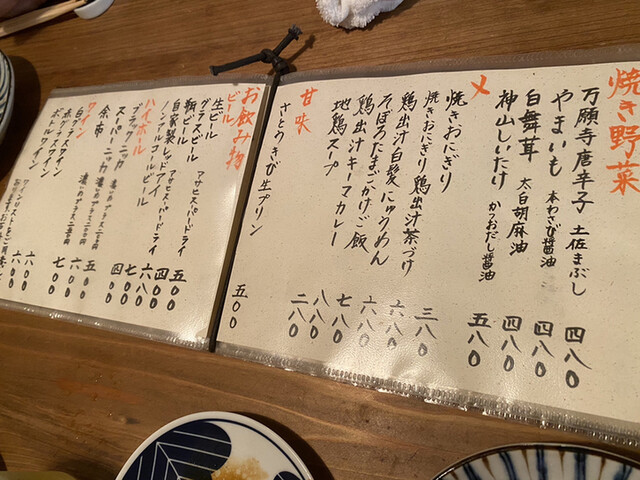 焼き野菜
万願寺唐辛子 土佐まぶし 四八〇
やまいも 本わさび醤油 四八〇
白舞茸 太白胡麻油 四八〇
神山しいたけ かつおだし醤油 五八〇
〆
焼きおにぎり 三八〇
焼きおにぎり鶏出汁茶づけ 六八〇
鶏出汁白髪にゅうめん 六八〇
そぼろたまごかけご飯 七八〇
鶏出汁キーマカレー 八八〇
地鶏スープ 二八〇
甘味
さとうきび生プリン 五〇〇
お飲み物
ビール
生ビール アサヒスーパードライ 五〇〇
グラスビール 四〇〇
瓶ビール アサヒスーパードライ 六八〇
自家製レッドアイ 七〇〇
ノンアルコールビール 四〇〇
ハイボール
ブラックニッカ 五〇〇
スーパーニッカ 濃いめプラス二百円 六〇〇
余市 濃いめプラス二百円 七〇〇
ワイン
白グラスワイン 六〇〇
赤グラスワイン 六〇〇
ボトルワイン